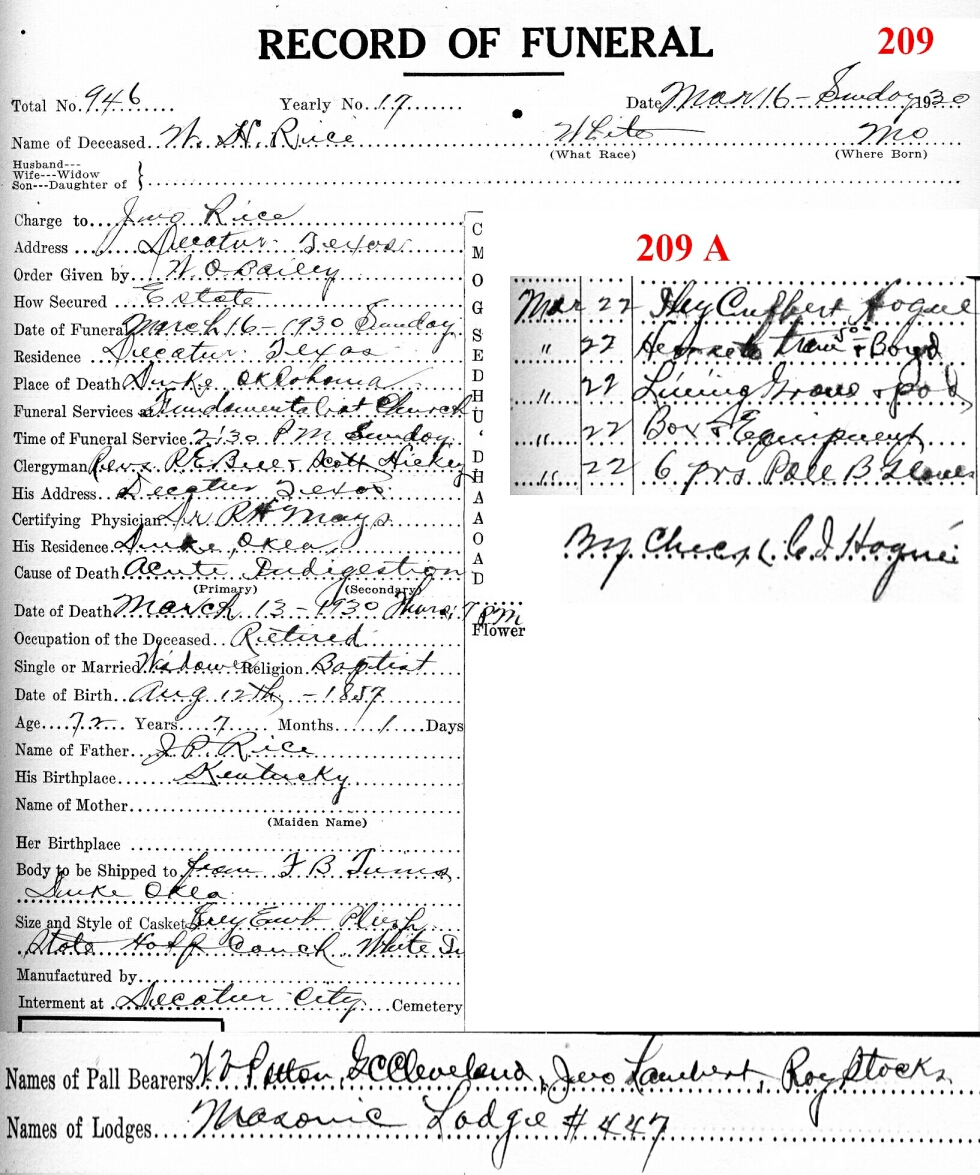 RECORD OF FUNERAL 209
Total No. 946 Yearly No. 17 Date Mar 16 - Sunday 1930
Name of Deceased W. H. Rice White Mo
(What Race) (Where Born)
Husband---
Wife---Widow
Son---Daughter of
Charge to Jno Rice
Address Decatur Texas
Order Given by W. O Bailey
How Secured Estate
Date of Funeral March 16 - 1930 Sunday
Residence Decatur Texas
Place of Death Duke Oklahoma
Funeral Services at Fundamentalist Church
Time of Funeral Service 2:30 P.M. Sunday
Clergyman Revs. R.E. Bell & Scott Hickey
His Address Decatur Texas
Certifying Physician Dr R H Mays
His Residence Duke, Okla,
Cause of Death Acute Indigestion
(Primary) (Secondary)
Date of Death March 13 - 1930 Thurs, 7 PM
Occupation of the Deceased Rietired
Single or Married Widower Religion Baptist
Date of Birth Aug 12th, - 1857
Age 72 Years 7 Months 1 Days
Name of Father J. P. Rice
His Birthplace Kentucky
Name of Mother
(Maiden Name)
Her Birthplace
Body to be Shipped to from F B Tims
Duke Okla
Size and Style of Casket Grey Emb Plush
State Half Couch White
Manufactured by
Interment at Decatur City Cemetery
C
M
O
G
S
E
D
H
U
'
D
H
A
A
O
A
D
Flower
209 A
Mar 22 Hogue
" 22 Boyd
" 22 Lining Grave &
" 22 Box & Equipment
" 22 6 prs Pall B Gloves
By Check C. I. Hogue
Names of Pall Bearers Patton, G C Cleveland, Jno Lambert, Roy Stocks
Names of Lodges Masonic Lodge # 447